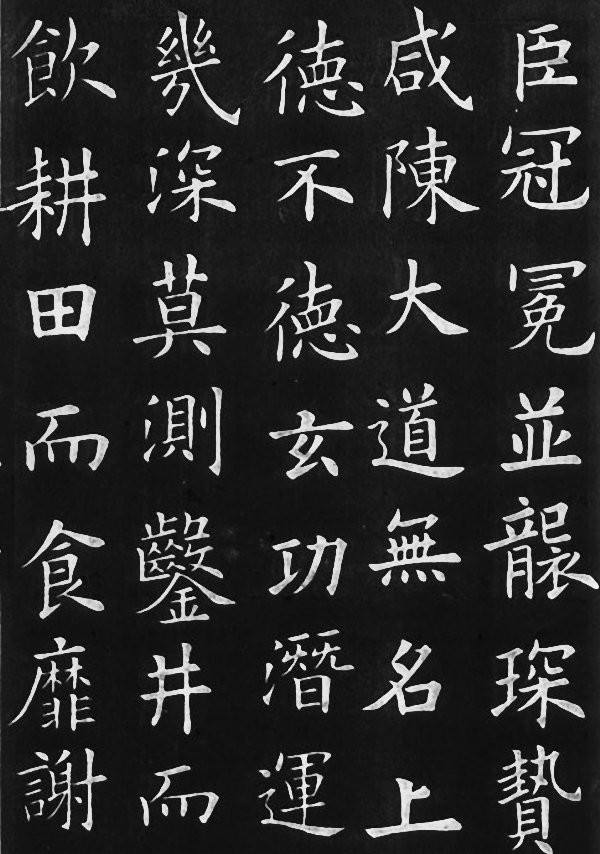 臣冠冕並襲琛贄
咸陳大道無名上
德不德玄功潛運
幾深莫測鑿井而
飲耕田而食靡謝